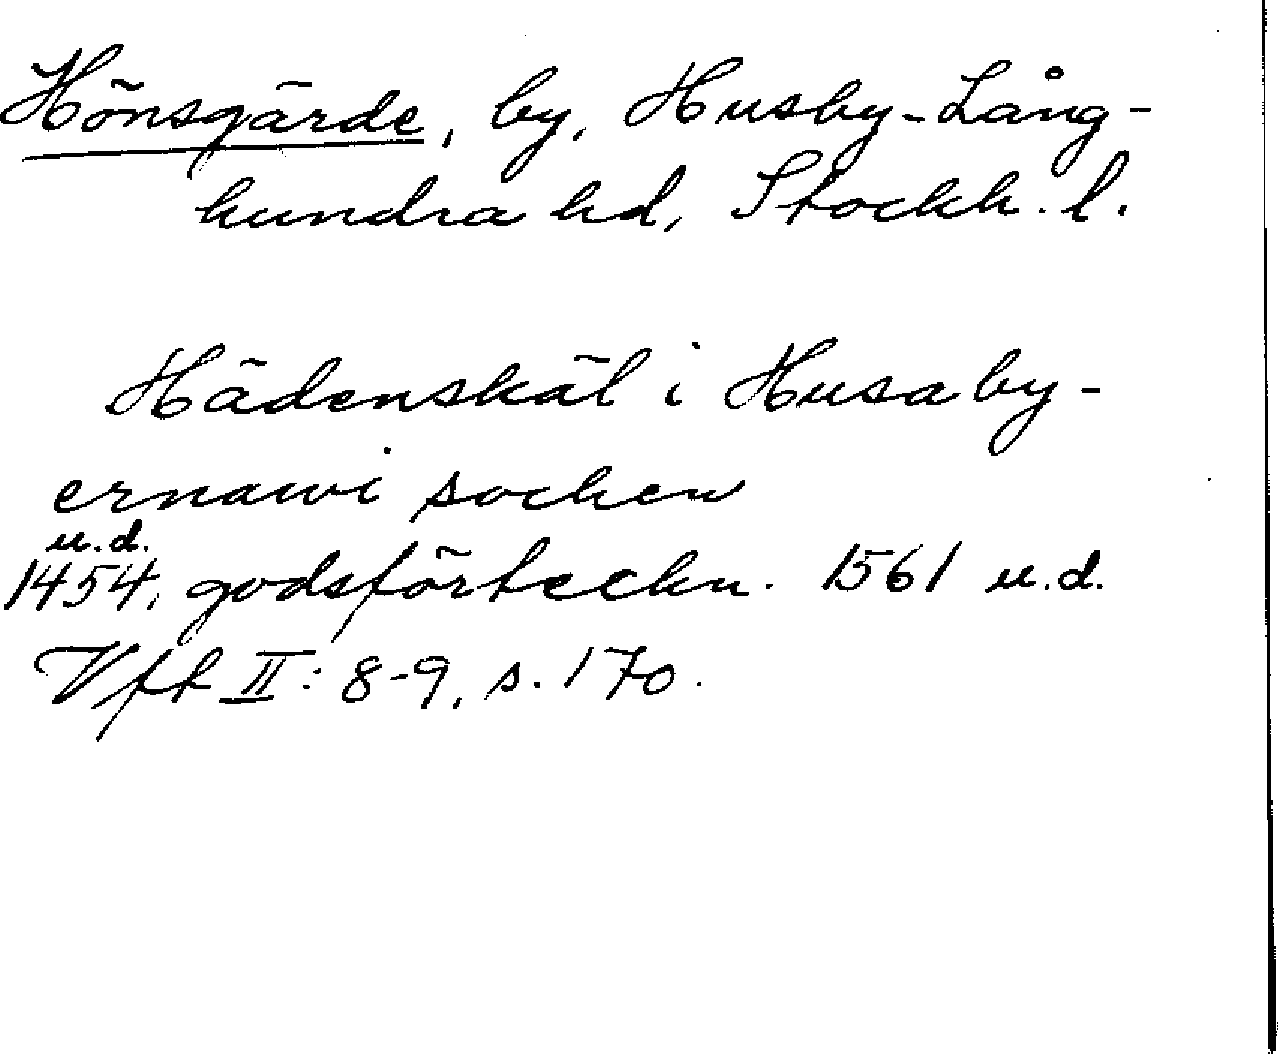 Hönsgärde, by, Husby-Lång-
hundra hd, Stockh. l.
Hädenskäl i Husaby-
ernawi sochen
u.d.
1454, godsförteckn. 1561 u.d.
Vft II: 8-9, s. 170.